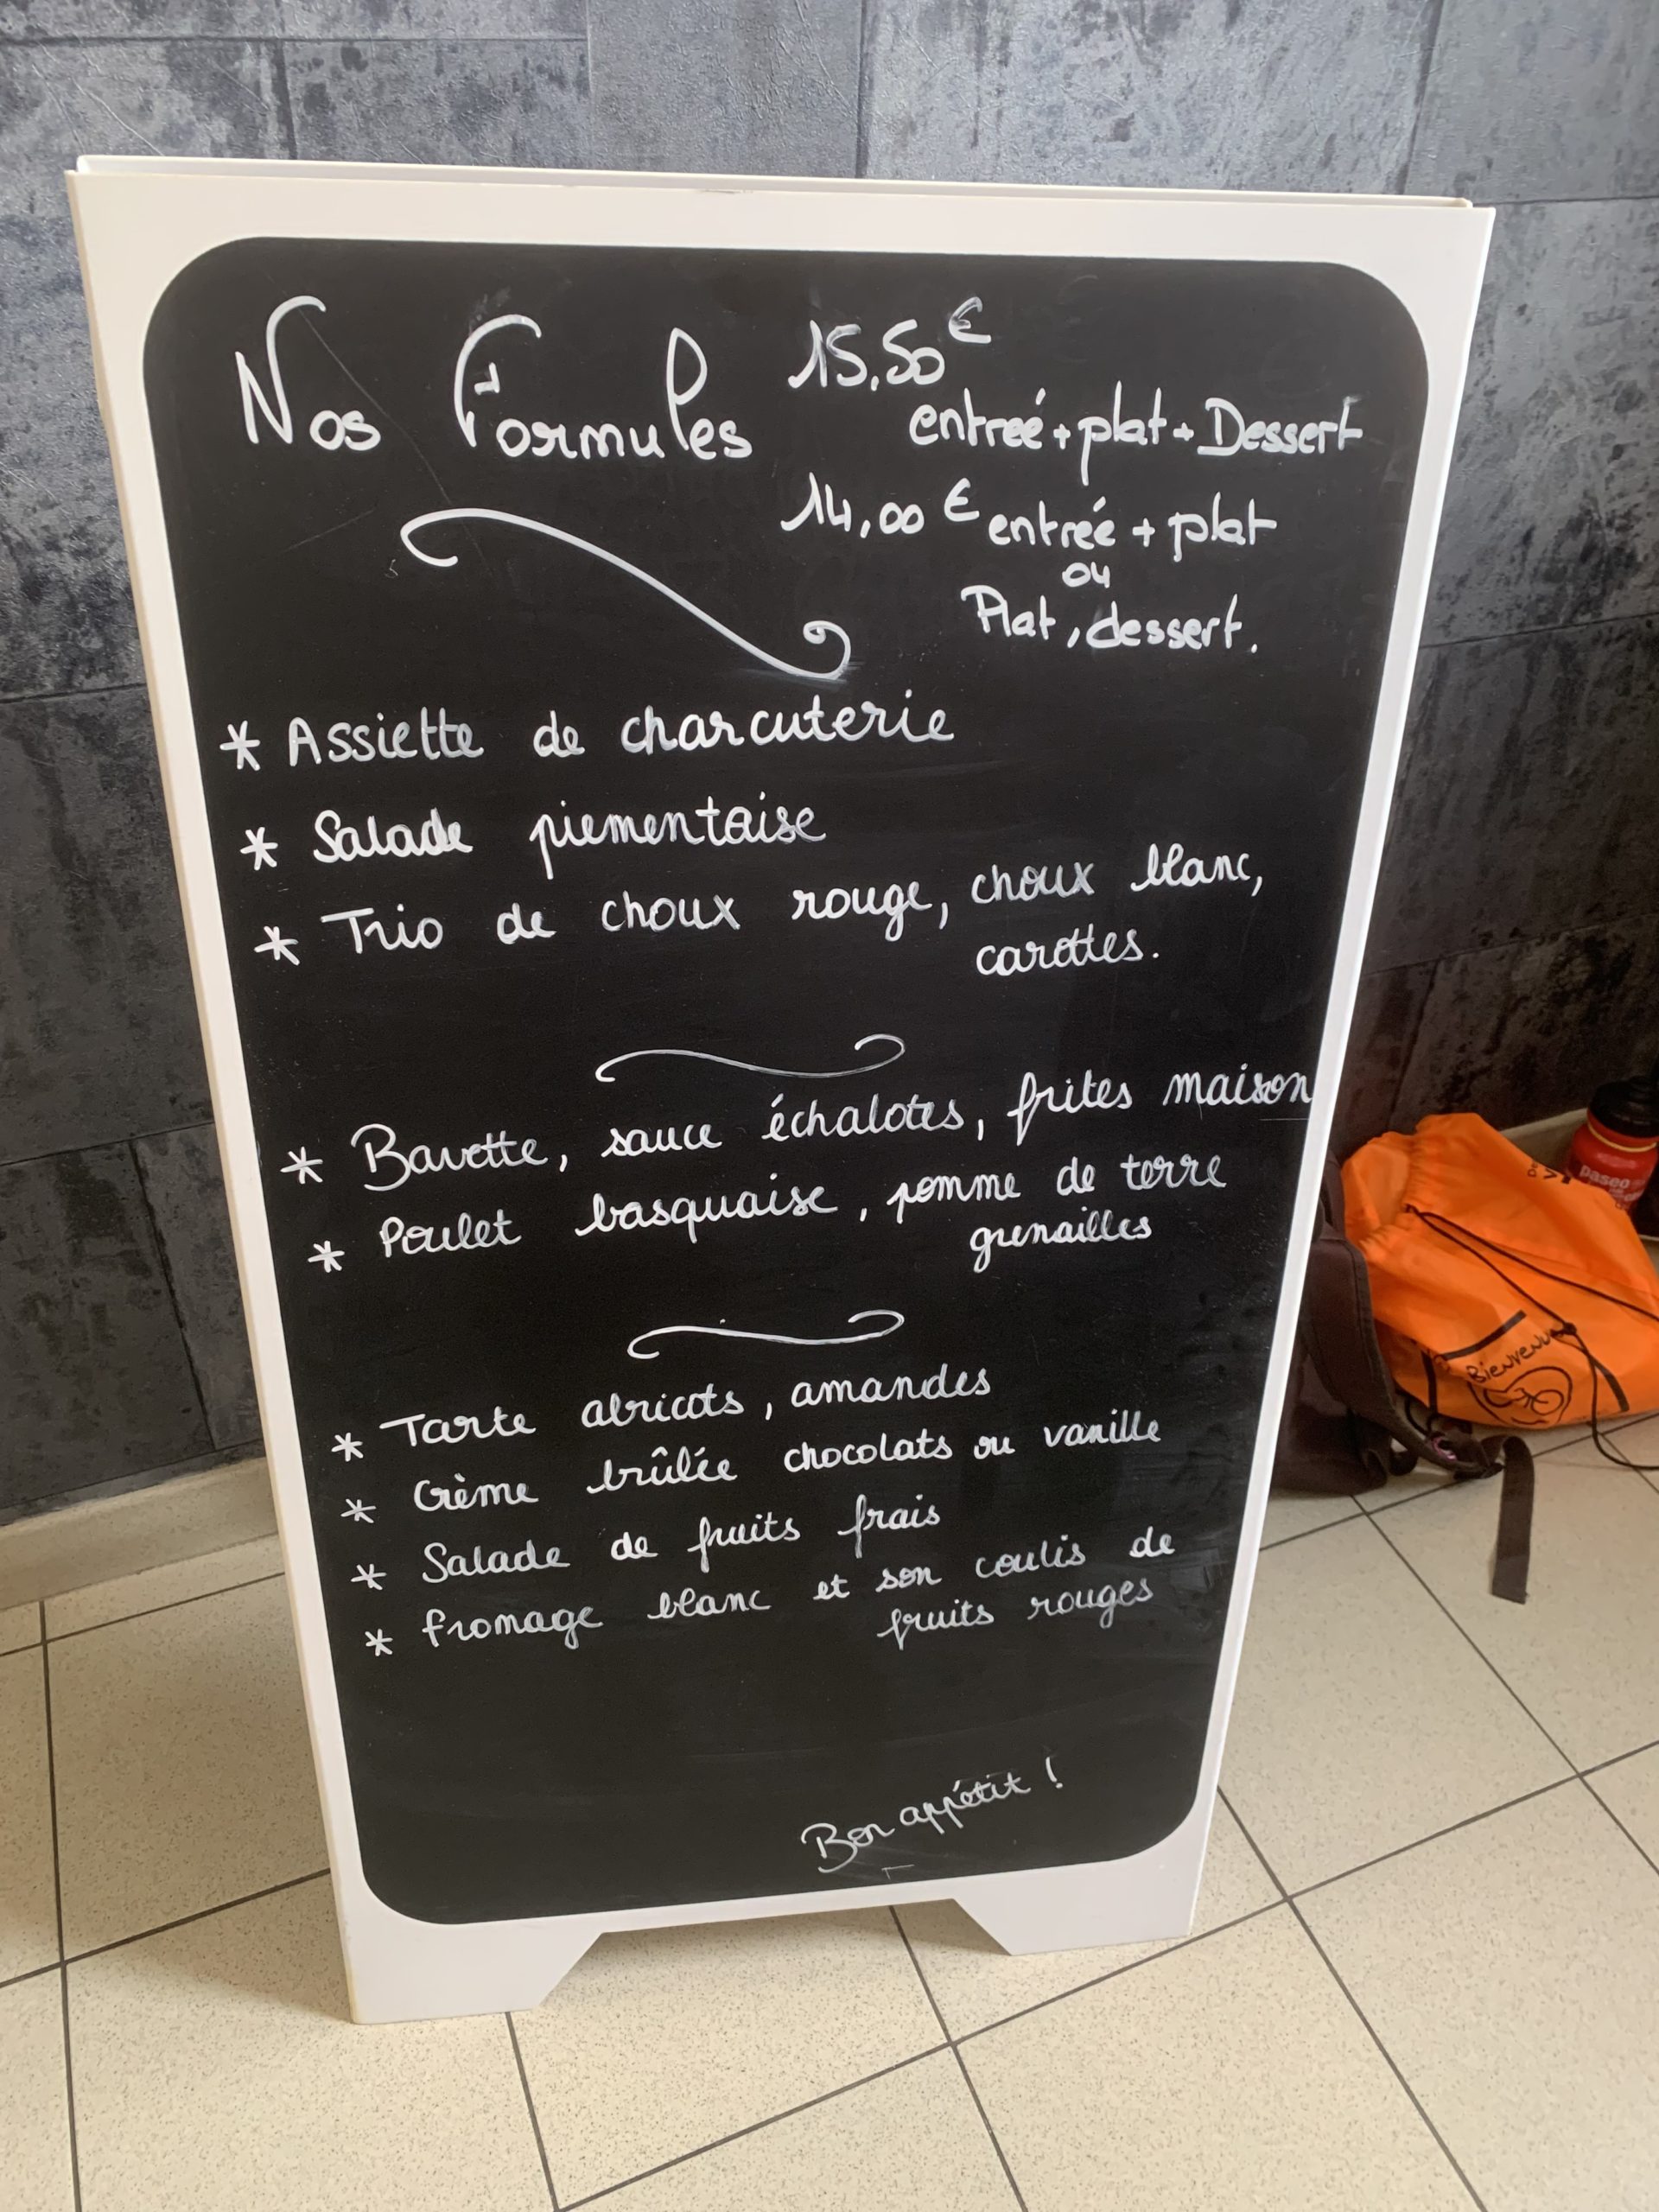 Nos Formules 15,50€
entreé + plat + Dessert
14,00 € entrée + plat
ou
Plat, dessert.
* Assiette de charcuterie
* Salade piementaise
* Trio de choux rouge, choux blanc,
carottes.
* Bavette, sauce échalotes, frites maison
* Poulet basquaise, pomme de terre
grenailles
* Tarte abricots, amandes
* Crème brûlée chocolats ou vanille
* Salade de fruits frais
* fromage blanc et son coulis de
fruits rouges
Bon appétit !
paseo
Bienvenue